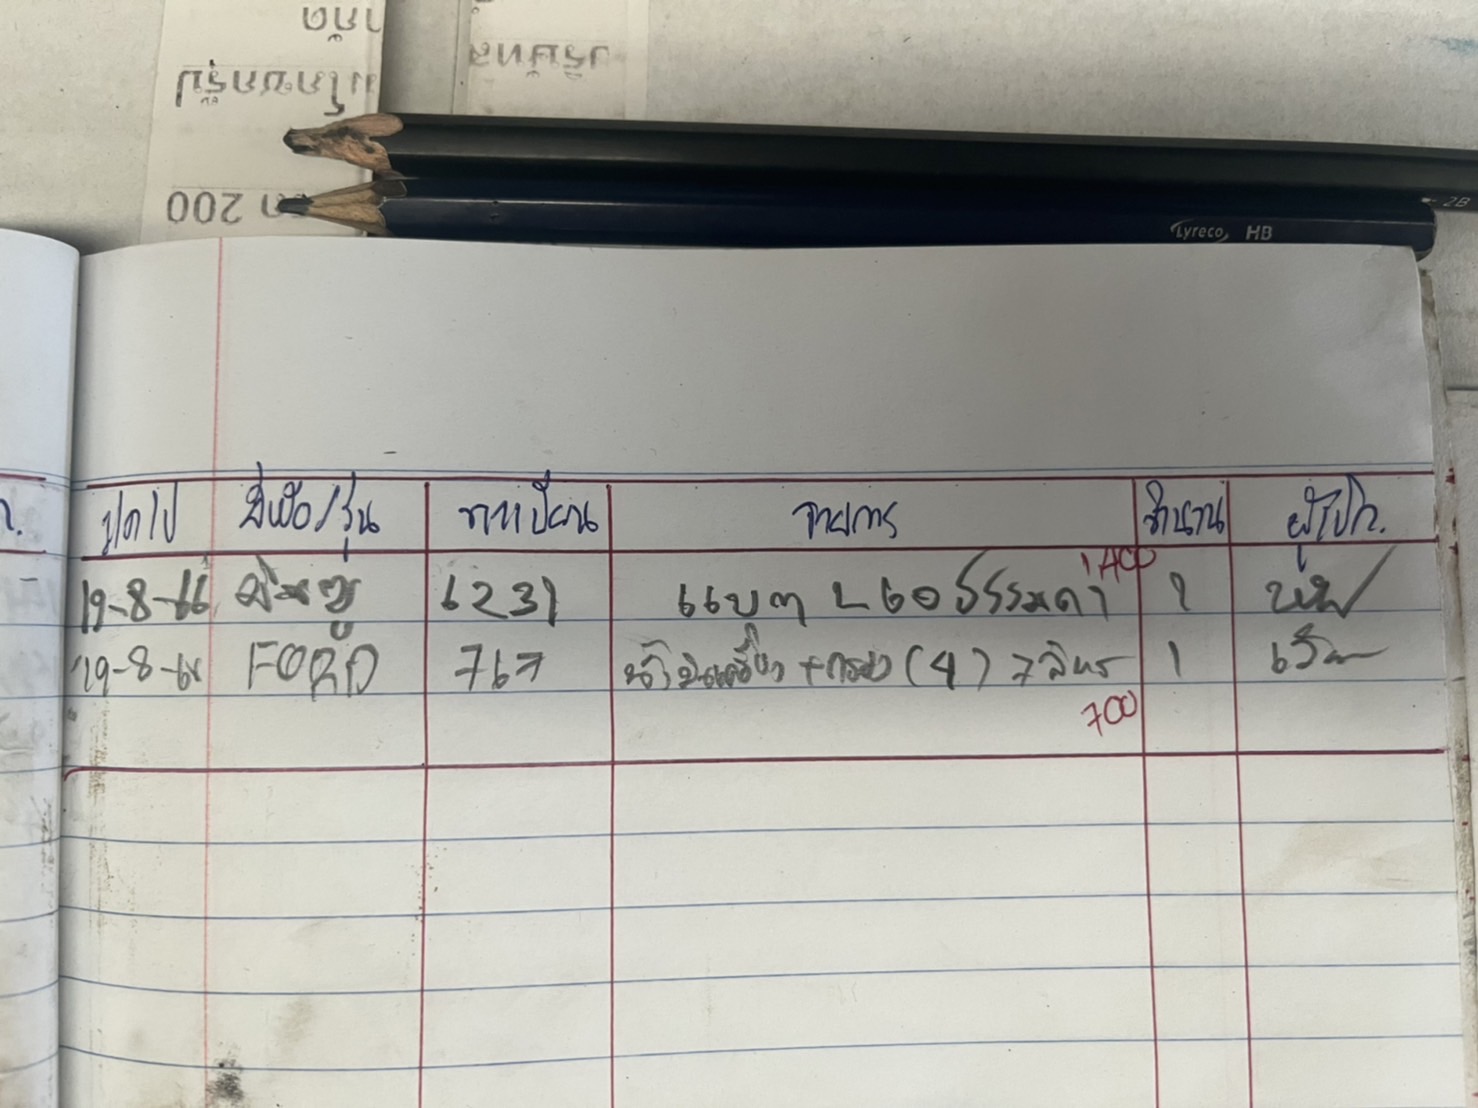 200
2B
Lyreco HB
ว/ด/ป ยี่ห้อ/รุ่น ทะเบียน รายการ จำนวน ผู้เบิก.
1400
19-8-66 อีซูซุ 6231 แบต L 60 ธรรมดา 1
19-8-66 FORD 767 น้ำมันเครื่อง + กรอง (4) 7 ลิตร 1
700